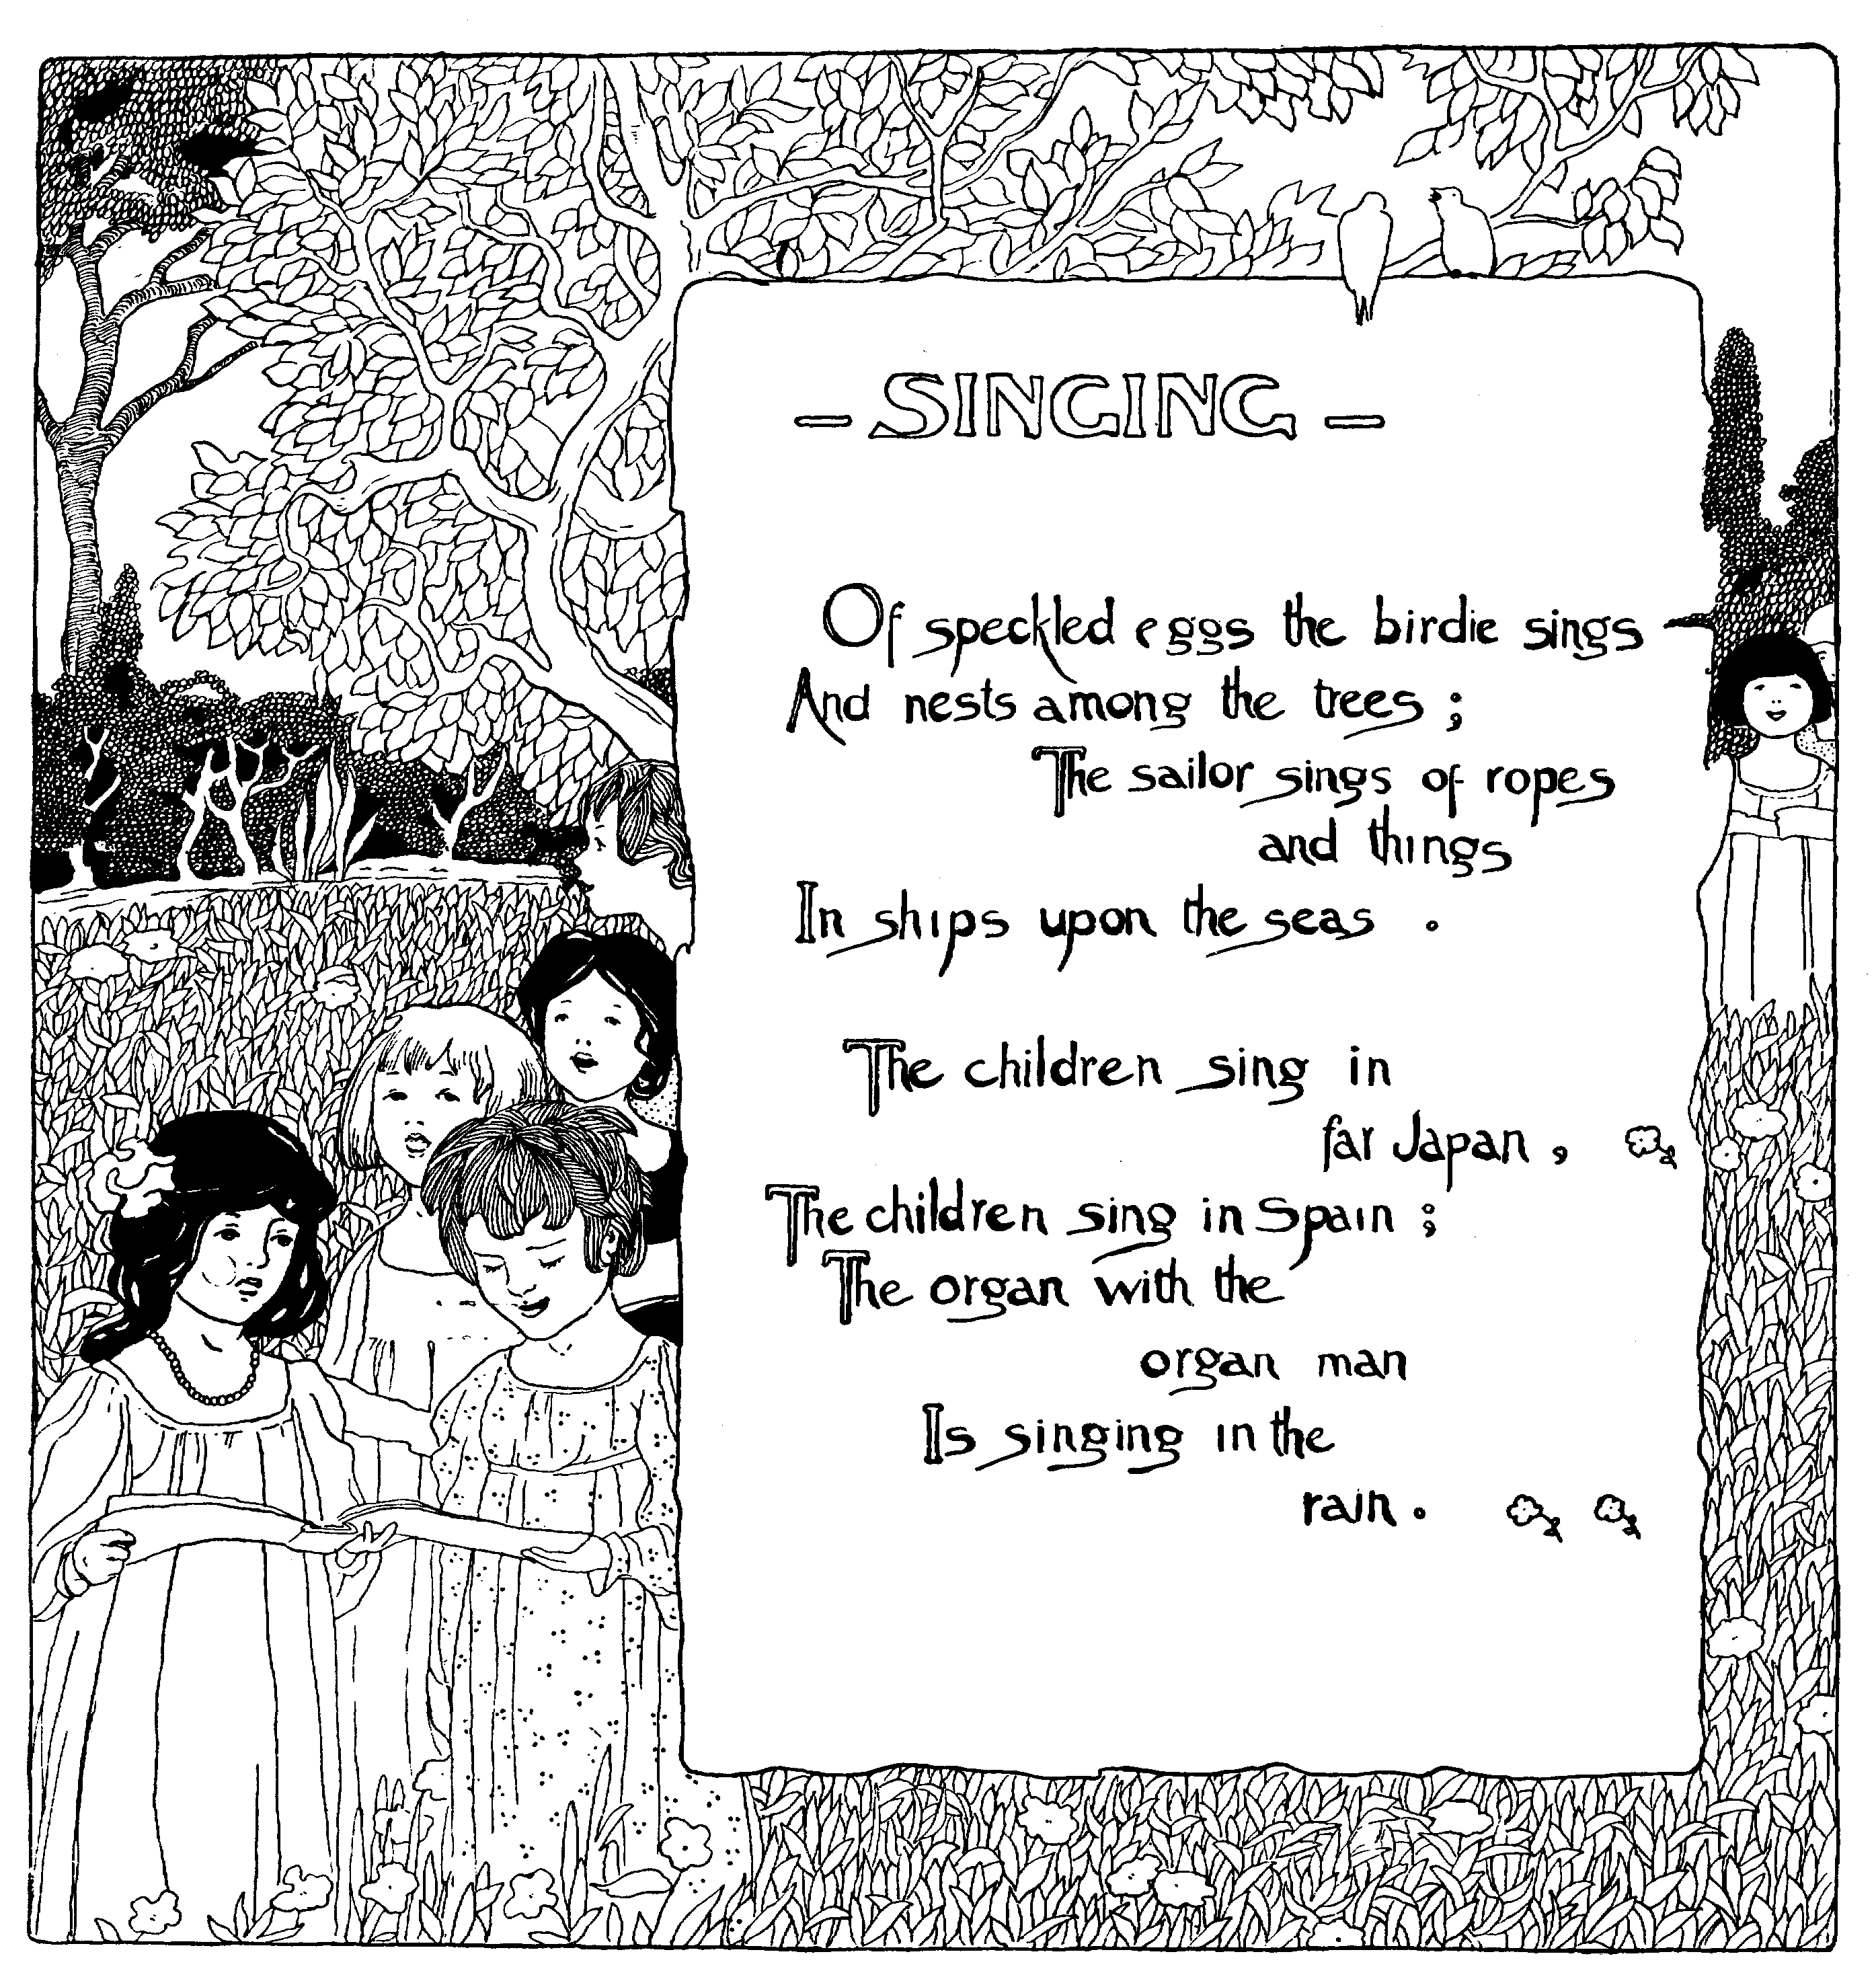 – SINGING –
Of speckled eggs the birdie sings
And nests among the trees ;
The sailor sings of ropes
and things
In ships upon the seas .
The children sing in
far Japan ,
The children sing in Spain ;
The organ with the
organ man
Is singing in the
rain .